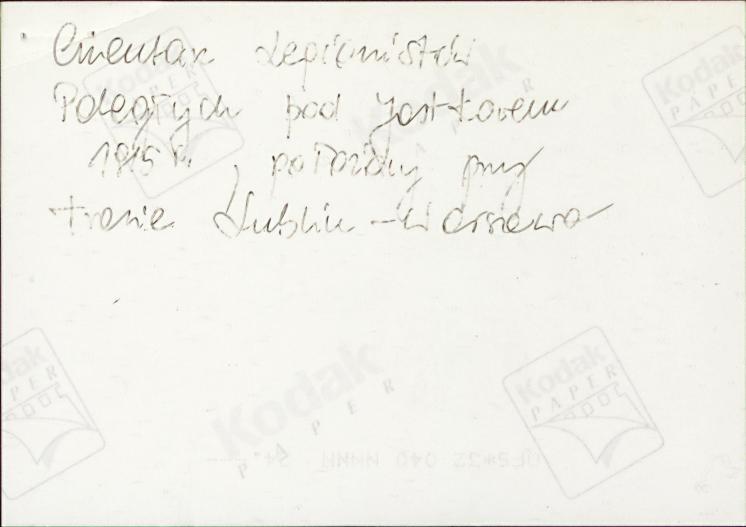 Cmentarz Legionistów
Poległych pod Jastkowem
1915 r., położony przy
trasie Lublin - Warszawa
Kodak
PAPER
Kodak
PAPER
Kodak
PAPER
Kodak
PAPER
Kodak
PAPER